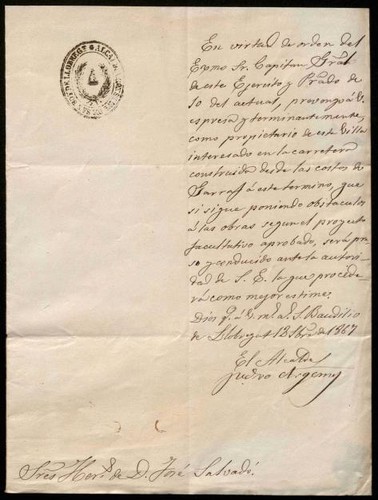 En virtud de orden del
Exmo Sr. Capitan Gral
de este Ejercito y Prado de
10 del actual, prevengo á V.
espresa y terminantemente,
como propietario de esta Villa
interesado en la carretera
construida desde las costas de
Garraf á este termino, que
si sigue poniendo obstaculos
á las obras segun el proyecto
facultativo aprobado, será pre-
so y conducido ante la autori-
dad de S. E. la que procede-
rá como mejor estime.
Dios g. á V. m. a. S. Baudilio
de Llobregat 18 Sbre de 1867
El Alcalde
Sres Hers de D. José Salvadó.